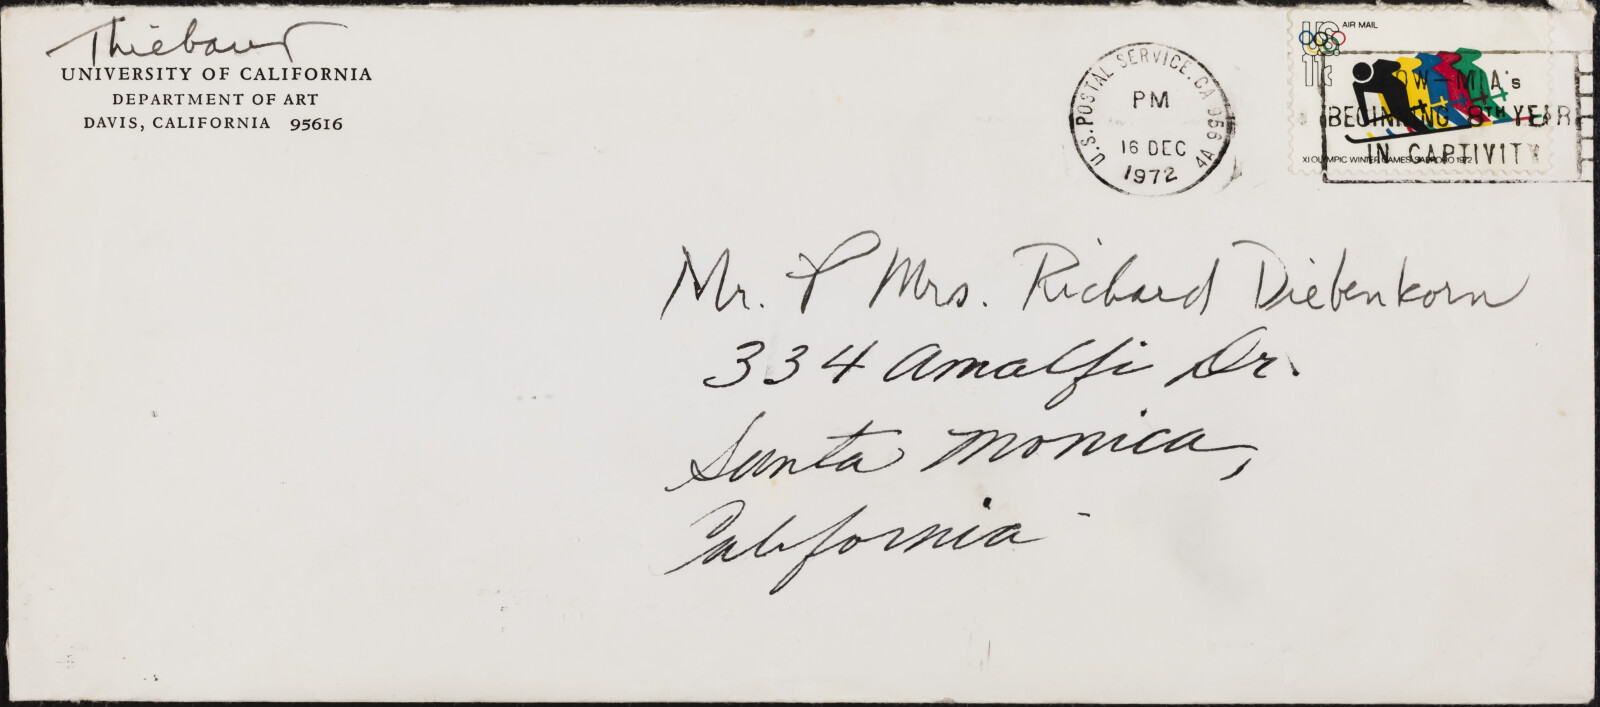 Thiebaud
UNIVERSITY OF CALIFORNIA
DEPARTMENT OF ART
DAVIS, CALIFORNIA 95616
U.S. POSTAL SERVICE, CA 956
4A
PM
16 DEC
1972
US
11c
AIR MAIL
POW-MIA's
BEGINNING 8TH YEAR
IN CAPTIVITY
XI OLYMPIC WINTER GAMES SAPPORO 1972
Mr. & Mrs. Richard Diebenkorn
334 Amalfi Dr.
Santa Monica,
California